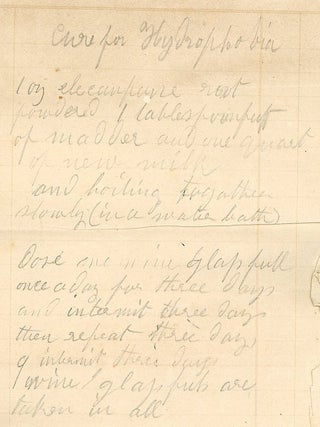 Cure for Hydrophobia
1 oz elecanpane root
powdered 1 tablespoonfull
of madder and one quart
of new milk
and boiling togather
slowly (in a water bath)
Dose one wine glassfull
once a day for three days
and intermit three days
then repeat three days
intermit three days
wine glassfuls are
taken in all